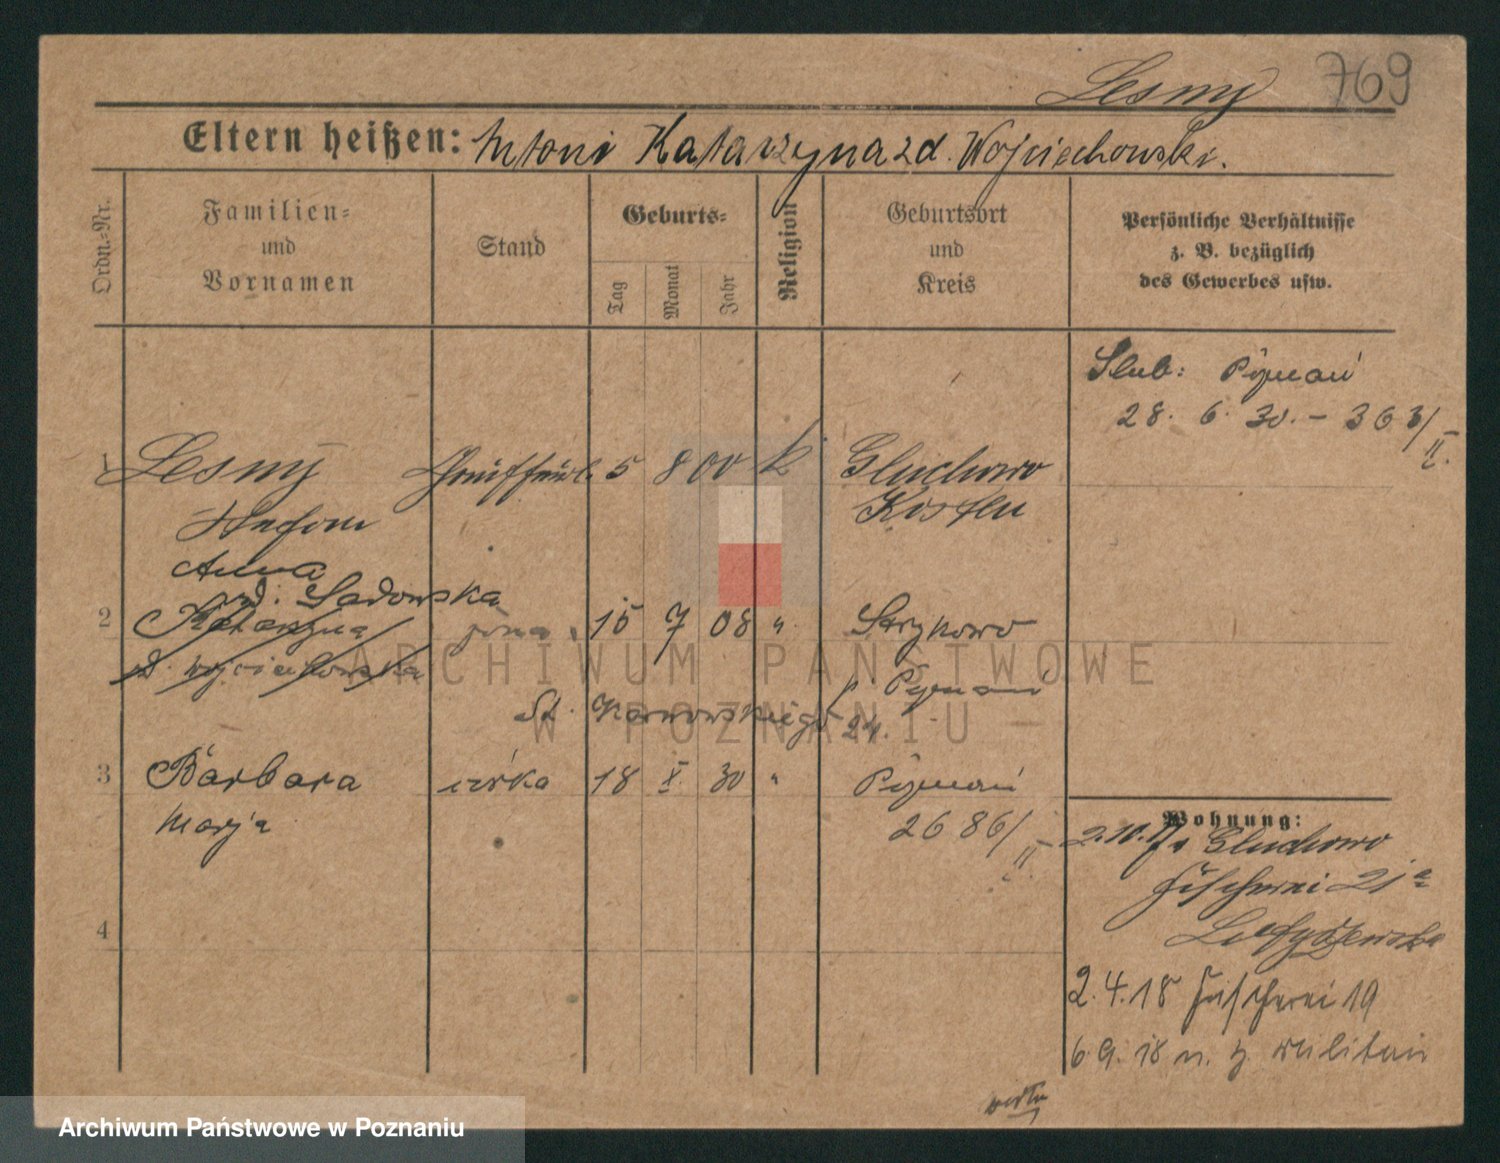 Lesny 769
Eltern heißen: Antoni Katarzyna zd. Wojciechowski.
Ordn.-Nr.
Familien-
und
Vornamen
Stand
Geburts-
Tag
Monat
Jahr
Religion
Geburtsort
und
Kreis
Persönliche Verhältnisse
z. B. bezüglich
des Gewerbes usw.
Ślub: Poznań
28. 6. 30. - 363/
II.
1 Lesny 5 8 00 k Gluchowo
Stefan Kosten
Anna
zd. Sadowska
2 Katarzyna żona 15 7 08 " Strykowo
d. Wojciechowska
p. Poznań
24.
3 Barbara córka 18 X. 30 " Poznań
Marja 2686/
II
4
Wohnung:
2.10.17 v Gluchowo
Fischerei 21a
2.4.18 Fischerei 19
6.9.18 n. z. Militair
ARCHIWUM PAŃSTWOWE
W POZNANIU
Archiwum Państwowe w Poznaniu